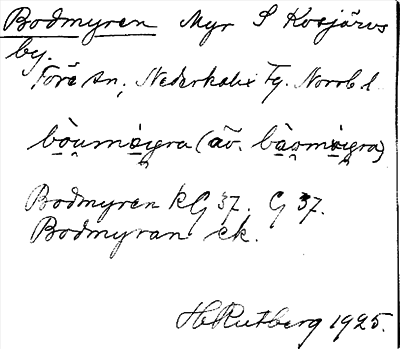 Bodmyren Myr S Kosjärvs
by.
Före sn, Nederkalix Tg. Norrb l.
bòumỳra (äv. bàomỳra)
Bodmyren kG 37. G 37.
Bodmyran ek.
H Rutberg 1925.